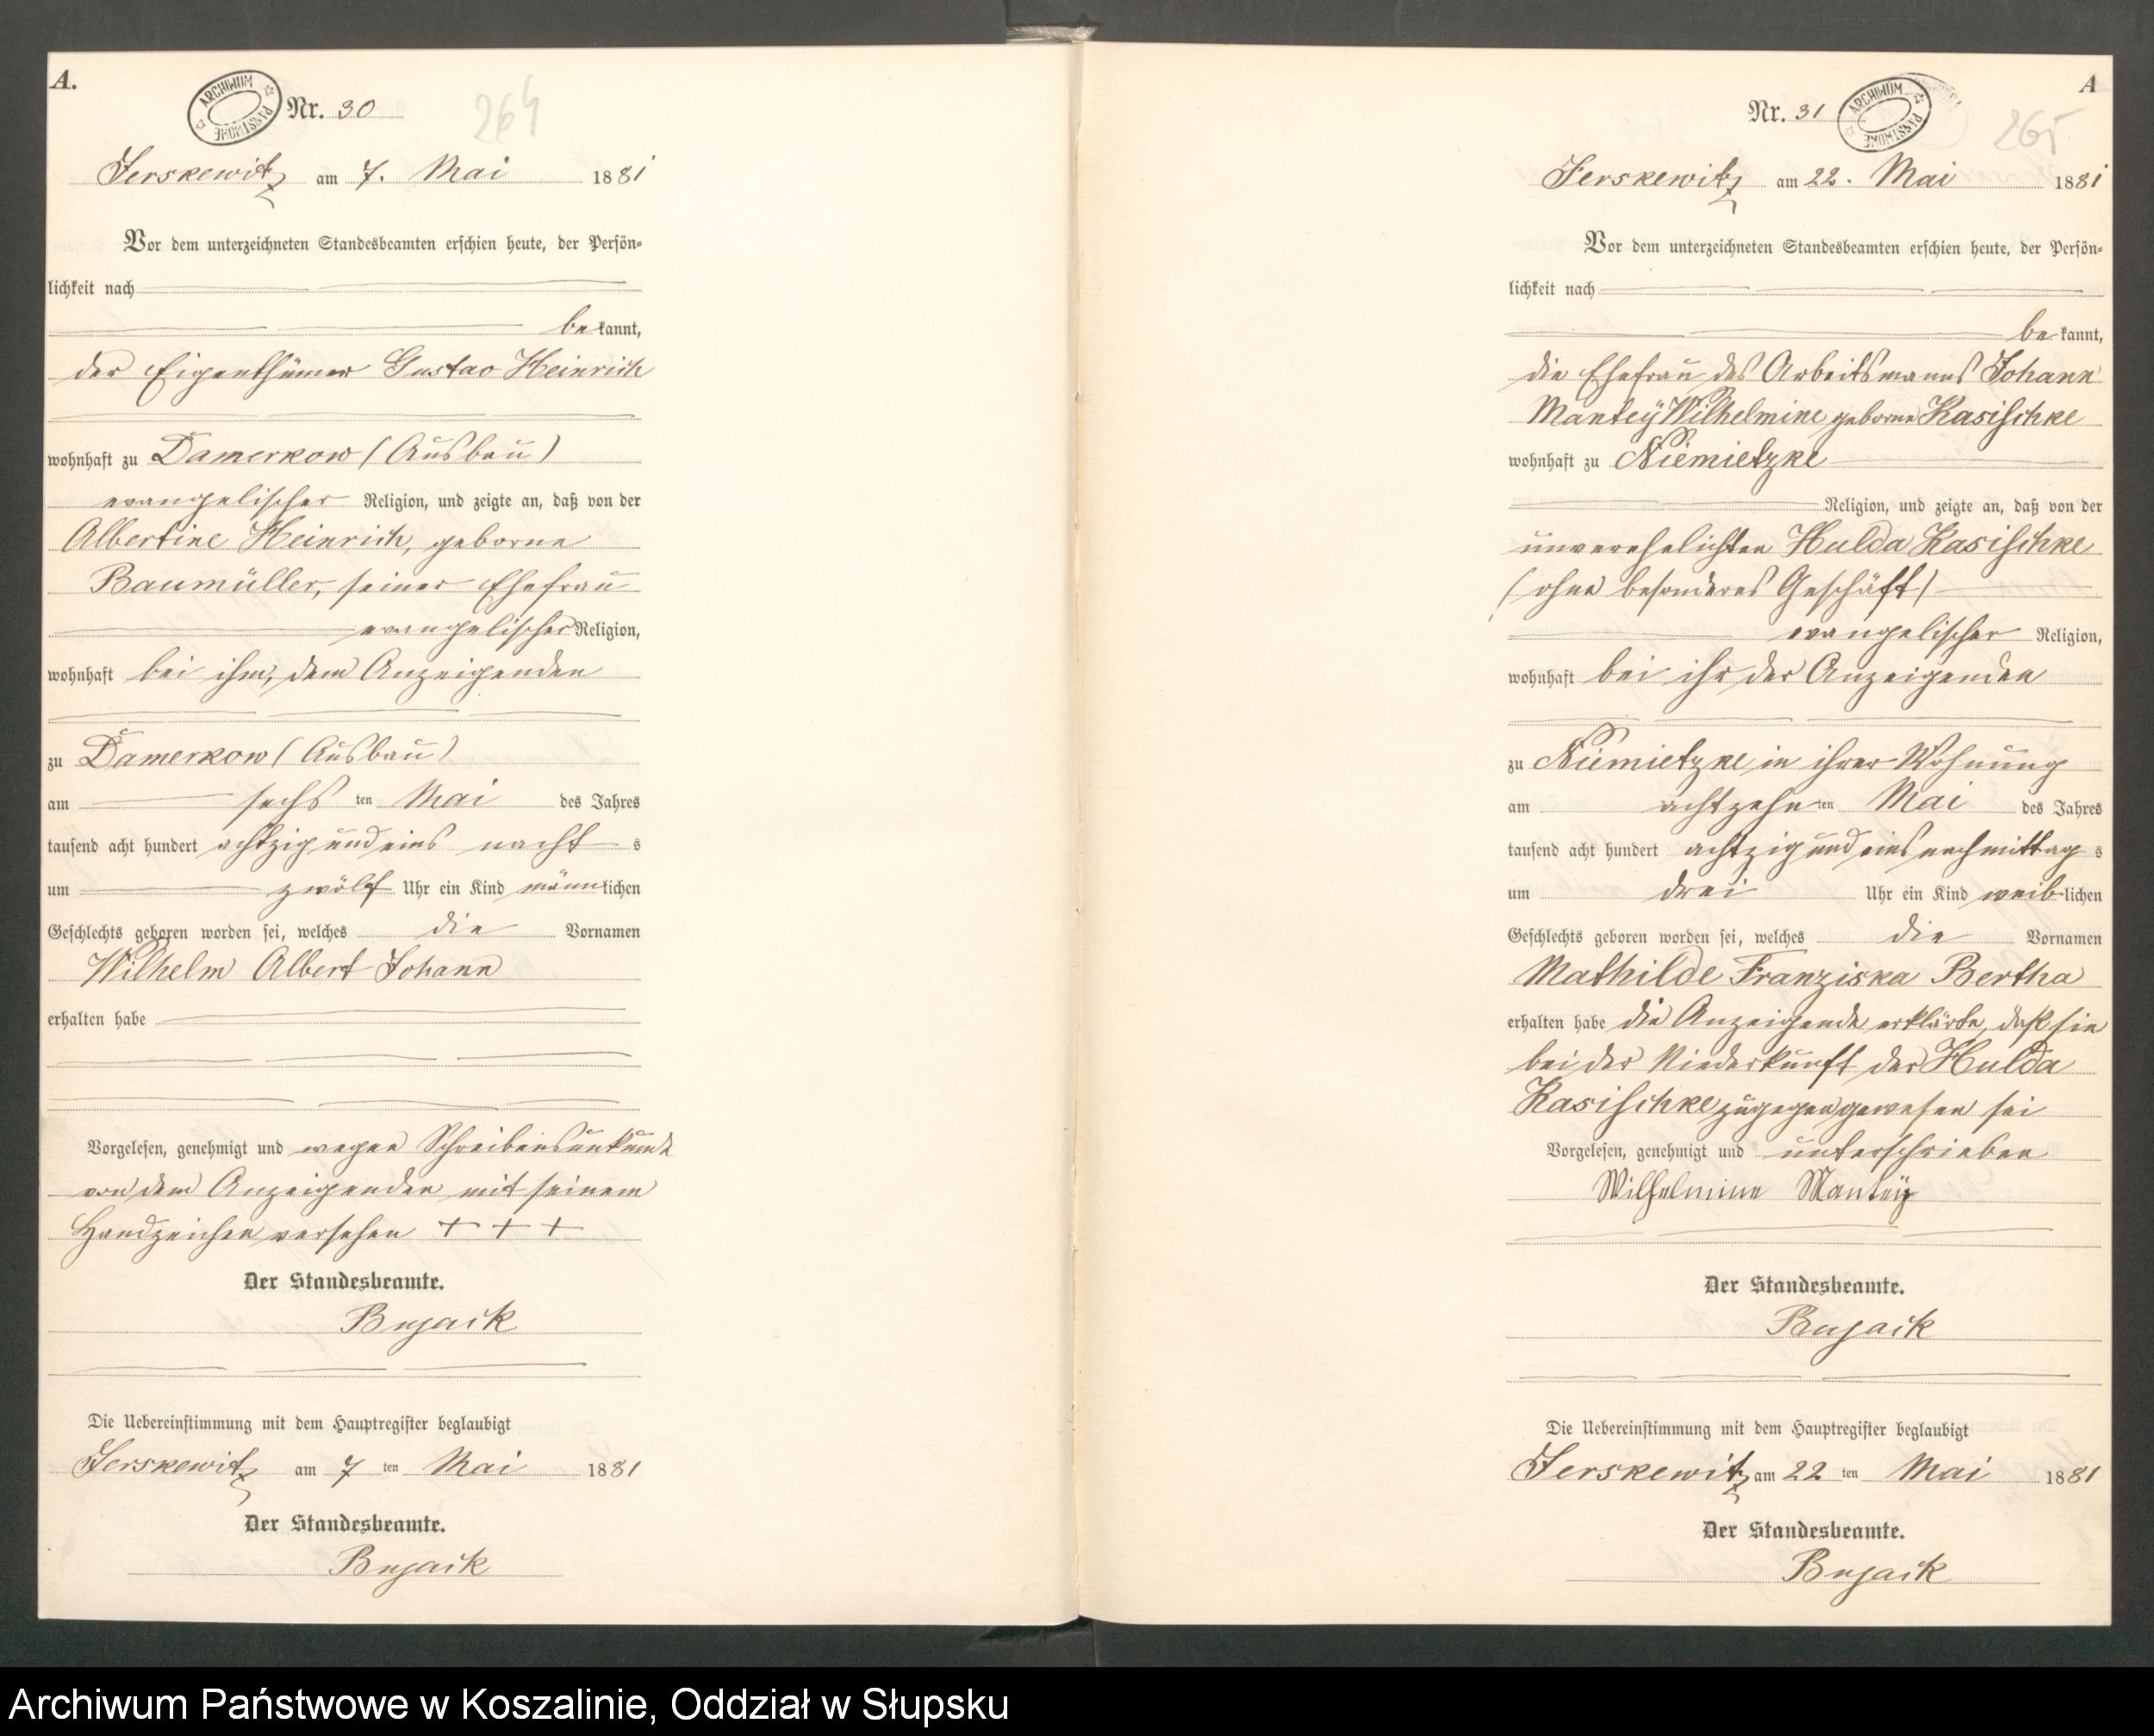 A.
ARCHIWUM PAŃSTWOWE
Nr. 30
264
Jerskewitz am 7. Mai 1881
Vor dem unterzeichneten Standesbeamten erschien heute, der Persön-
lichkeit nach
bekannt,
der Eigenthümer Gustav Heinrich
wohnhaft zu Damerkow (Ausbau)
evangelischer Religion, und zeigte an, daß von der
Albertine Heinrich, geborne
Baumüller, seiner Ehefrau
evangelischer Religion,
wohnhaft bei ihm, dem Anzeigenden
zu Damerkow (Ausbau)
am sechs ten Mai des Jahres
tausend acht hundert achtzig und eins nachts
um zwölf Uhr ein Kind männlichen
Geschlechts geboren worden sei, welches die Vornamen
Wilhelm Albert Johann
erhalten habe
Vorgelesen, genehmigt und wegen Schreibensunkunde
von dem Anzeigenden mit seinem
Handzeichen versehen + + +
Der Standesbeamte.
Bujack
Die Uebereinstimmung mit dem Hauptregister beglaubigt
Jerskewitz am 7 ten Mai 1881
Der Standesbeamte.
Bujack
A
Nr. 31
ARCHIWUM PAŃSTWOWE
265
Jerskewitz am 22. Mai 1881
Vor dem unterzeichneten Standesbeamten erschien heute, der Persön-
lichkeit nach
bekannt,
die Ehefrau des Arbeitsmanns Johann
Mantey Wilhelmine geborne Kasischke
wohnhaft zu Niemietzke
Religion, und zeigte an, daß von der
unverehelichten Hulda Kasischke
(ohne besonderes Geschäft)
evangelischer Religion,
wohnhaft bei ihr der Anzeigenden
zu Niemietzke in ihrer Wohnung
am achtzehnten Mai des Jahres
tausend acht hundert achtzig und eins nachmittags
um drei Uhr ein Kind weiblichen
Geschlechts geboren worden sei, welches die Vornamen
Mathilde Franziska Bertha
erhalten habe die Anzeigende erklärte, daß sie
bei der Niederkunft der Hulda
Kasischke zugegen gewesen sei
Vorgelesen, genehmigt und unterschrieben
Wilhelmine Mantey
Der Standesbeamte.
Bujack
Die Uebereinstimmung mit dem Hauptregister beglaubigt
Jerskewitz am 22 ten Mai 1881
Der Standesbeamte.
Bujack
Archiwum Państwowe w Koszalinie, Oddział w Słupsku